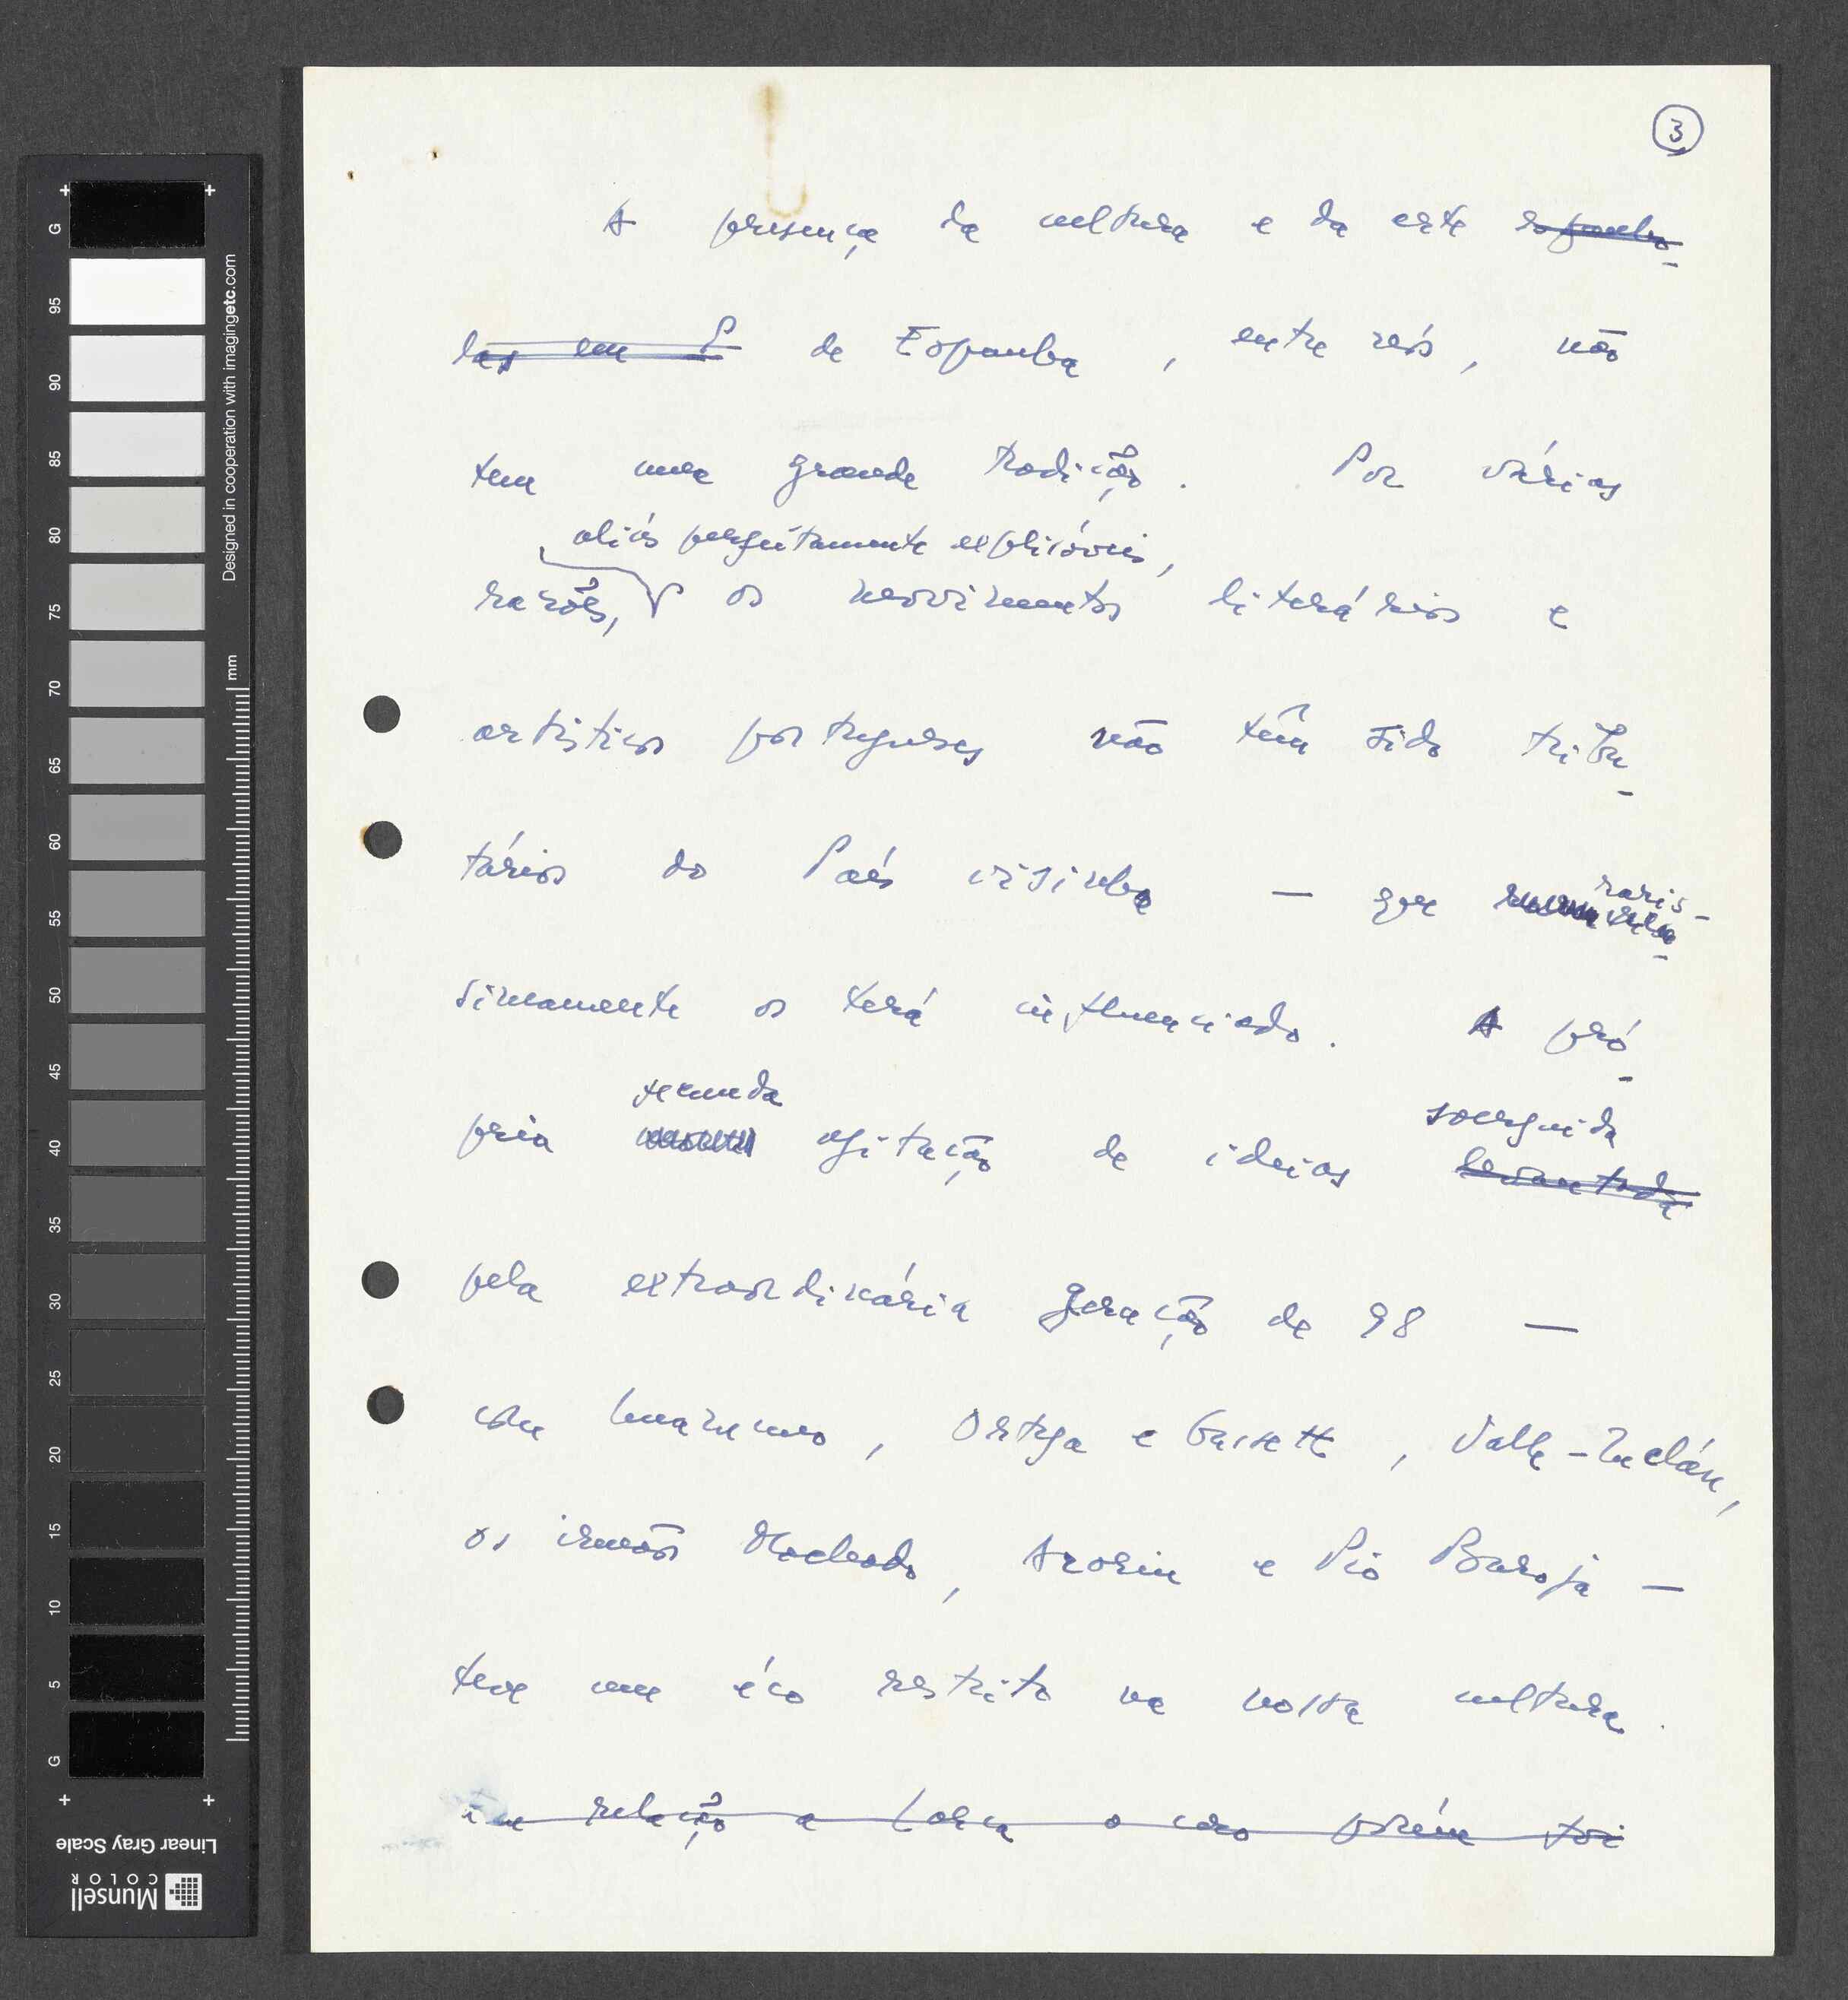 3
A presença da cultura e da arte espanho-
las em P de Espanha, entre nós, não
tem uma grande tradição. Por várias
aliás perfeitamente explicáveis,
razões, os movimentos literários e
artísticos portugueses não têm sido tribu-
tários do País visinho — que
rarís-
simamente os terá influenciado. A pró-
fecunda
soerguida
pria agitação de ideias levantada
pela extraordinária geração de 98 —
com Unamuno, Ortega e Gassett, Valle-Inclán,
os irmãos Machado, Azorin e Pio Baroja —
teve um éco restrito na nossa cultura.
Em relação a Lorca o caso porém foi
G
95
90
85
80
75
70
65
60
55
50
45
40
35
30
25
20
15
10
5
G
mm
Designed in cooperation with imagingetc.com
Linear Gray Scale
Munsell
COLOR